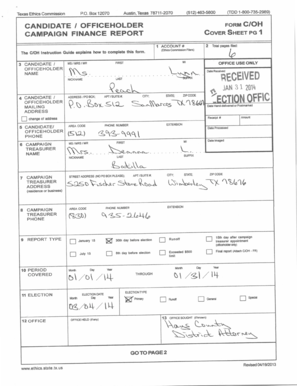 Texas Ethics Commission P.O. Box 12070 Austin, Texas 78711-2070 (512) 463-5800 (TDD 1-800-735-2989)
CANDIDATE / OFFICEHOLDER FORM C/OH
CAMPAIGN FINANCE REPORT COVER SHEET PG 1
The C/OH Instruction Guide explains how to complete this form.
1 ACCOUNT #
2 Total pages filed:
6
3 CANDIDATE / OFFICEHOLDER NAME
MS / MRS / MR FIRST MI
Ms. Lynn
NICKNAME LAST SUFFIX
Peach
OFFICE USE ONLY
Date Received
RECEIVED
JAN 31 2014
ELECTION OFFIC
4 CANDIDATE / OFFICEHOLDER MAILING ADDRESS
change of address
ADDRESS / PO BOX; APT / SUITE #; CITY; STATE; ZIP CODE
P.O. Box 512 San Marcos TX
Receipt # Amount
5 CANDIDATE/ OFFICEHOLDER PHONE
AREA CODE PHONE NUMBER EXTENSION
(512) 393-9991
Date Processed
6 CAMPAIGN TREASURER NAME
MS / MRS / MR FIRST MI
Mrs. Deanna L
NICKNAME LAST SUFFIX
Date Imaged
7 CAMPAIGN TREASURER ADDRESS
(residence or business)
STREET ADDRESS (NO PO BOX PLEASE); APT / SUITE #; CITY; STATE; ZIP CODE
5250 Fischer Store Road Wimberley TX 78676
8 CAMPAIGN TREASURER PHONE
AREA CODE PHONE NUMBER EXTENSION
(830) 935-2646
9 REPORT TYPE
January 15
30th day before election
Runoff
15th day after campaign treasurer appointment (officeholder only)
July 15
8th day before election
Exceeded $500 limit
Final report (Attach C/OH - FR)
10 PERIOD COVERED
Month Day Year
01/01/14
THROUGH
Month Day Year
11 ELECTION
ELECTION DATE
Month Day Year
03/04/14
ELECTION TYPE
Primary
Runoff
General
Special
12 OFFICE
OFFICE HELD (if any)
13 OFFICE SOUGHT (if known)
Hays County
District Attorney
GO TO PAGE 2
www.ethics.state.tx.us